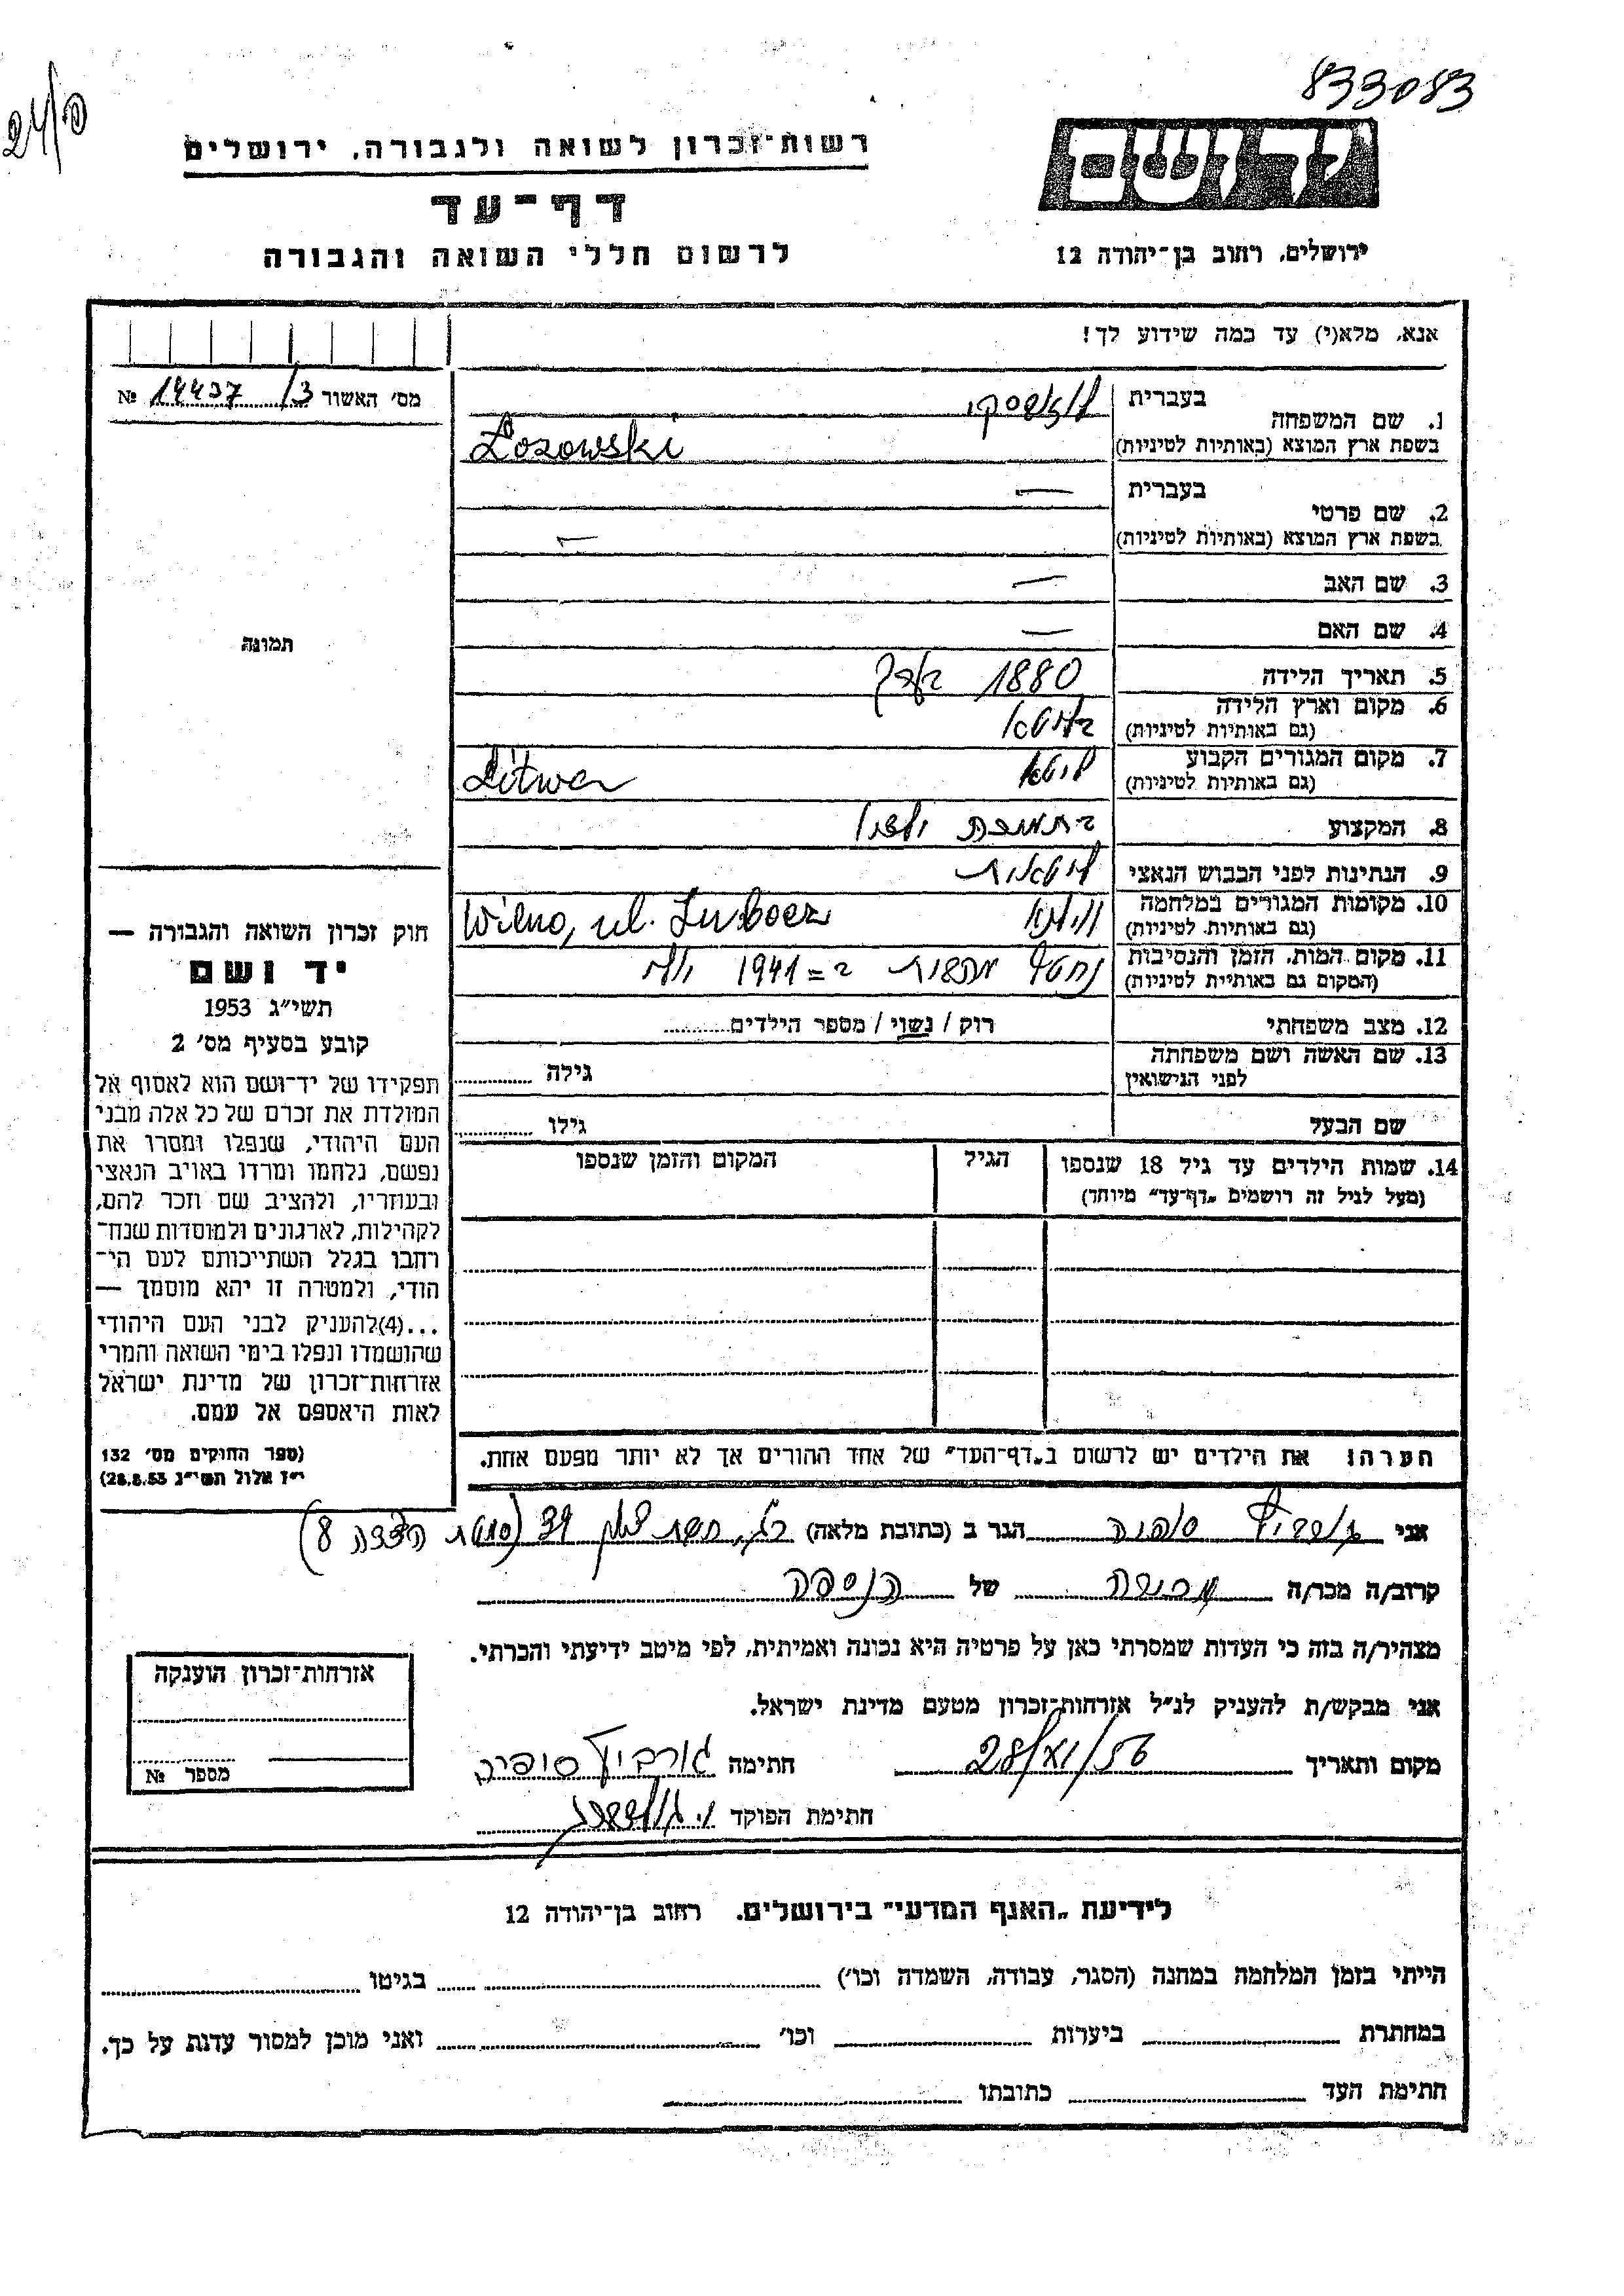 833083
24/
רשות־זכרון לשואה ולגבורה, ירושלים
דף־עד
לרשום חללי השואה והגבורה
יד ושם
ירושלים, רחוב בן־יהודה 12
אנא, מלא(י) עד כמה שידוע לך!
מס׳ האשור 14437/3 №
תמונה
1. שם המשפחה
בעברית
בשפת ארץ המוצא (באותיות לטיניות) Łozowski
2. שם פרטי
בעברית —
בשפת ארץ המוצא (באותיות לטיניות) —
3. שם האב —
4. שם האם —
5. תאריך הלידה 1880 בערך
6. מקום וארץ הלידה
(גם באותיות לטיניות)
7. מקום המגורים הקבוע ליטא
(גם באותיות לטיניות) Litwa
8. המקצוע
9. הנתינות לפני הכבוש הנאצי ליטאית
10. מקומות המגורים במלחמה וילנא
(גם באותיות לטיניות) Wilno, ul.
11. מקום המות, הזמן והנסיבות נחטף ב=1941
(המקום גם באותיית לטיניות)
12. מצב משפחתי רוק / נשוי / מספר הילדים
13. שם האשה ושם משפחתה
לפני הנישואין
גילה
שם הבעל גילו
14. שמות הילדים עד גיל 18 שנספו
(מעל לגיל זה רושמים „דף־עד״ מיוחד)
הגיל
המקום והזמן שנספו
הערה: את הילדים יש לרשום ב„דף־העד״ של אחד ההורים אך לא יותר מפעם אחת.
חוק זכרון השואה והגבורה —
יד ושם
תשי״ג 1953
קובע בסעיף מס׳ 2
תפקידו של יד־ושם הוא לאסוף אל
המולדת את זכרם של כל אלה מבני
העם היהודי, שנפלו ומסרו את
נפשם, נלחמו ומרדו באויב הנאצי
ובעוזריו, ולהציב שם וזכר להם,
לקהילות, לארגונים ולמוסדות שנח־
רחבו בגלל השתייכותם לעם הי־
הודי, ולמטרה זו יהא מוסמך —
...(4)להעניק לבני העם היהודי
שהושמדו ונפלו בימי השואה והמרי
אזרחות־זכרון של מדינת ישראל
לאות היאספם אל עמם.
(ספר החוקים מס׳ 132
י״ז אלול תשי״ג 28.8.53)
אני גורביץ סופיה הגר ב (כתובת מלאה)
קרוב/ה מכר/ה מכירה של הנספה
מצהיר/ה בזה כי העדות שמסרתי כאן על פרטיה היא נכונה ואמיתית, לפי מיטב ידיעתי והכרתי.
אני מבקש/ת להעניק לנ״ל אזרחות־זכרון מטעם מדינת ישראל.
מקום ותאריך 28/XI/56 חתימה גורביץ סופיה
חתימת הפוקד
אזרחות־זכרון הוענקה
מספר №
לידיעת „האגף המדעי״ בירושלים, רחוב בן־יהודה 12
הייתי בזמן המלחמה במחנה (הסגר, עבודה, השמדה וכו׳) בגיטו
במחתרת ביערות וכו׳ ואני מוכן למסור עדות על כך.
חתימת העד כתובתו